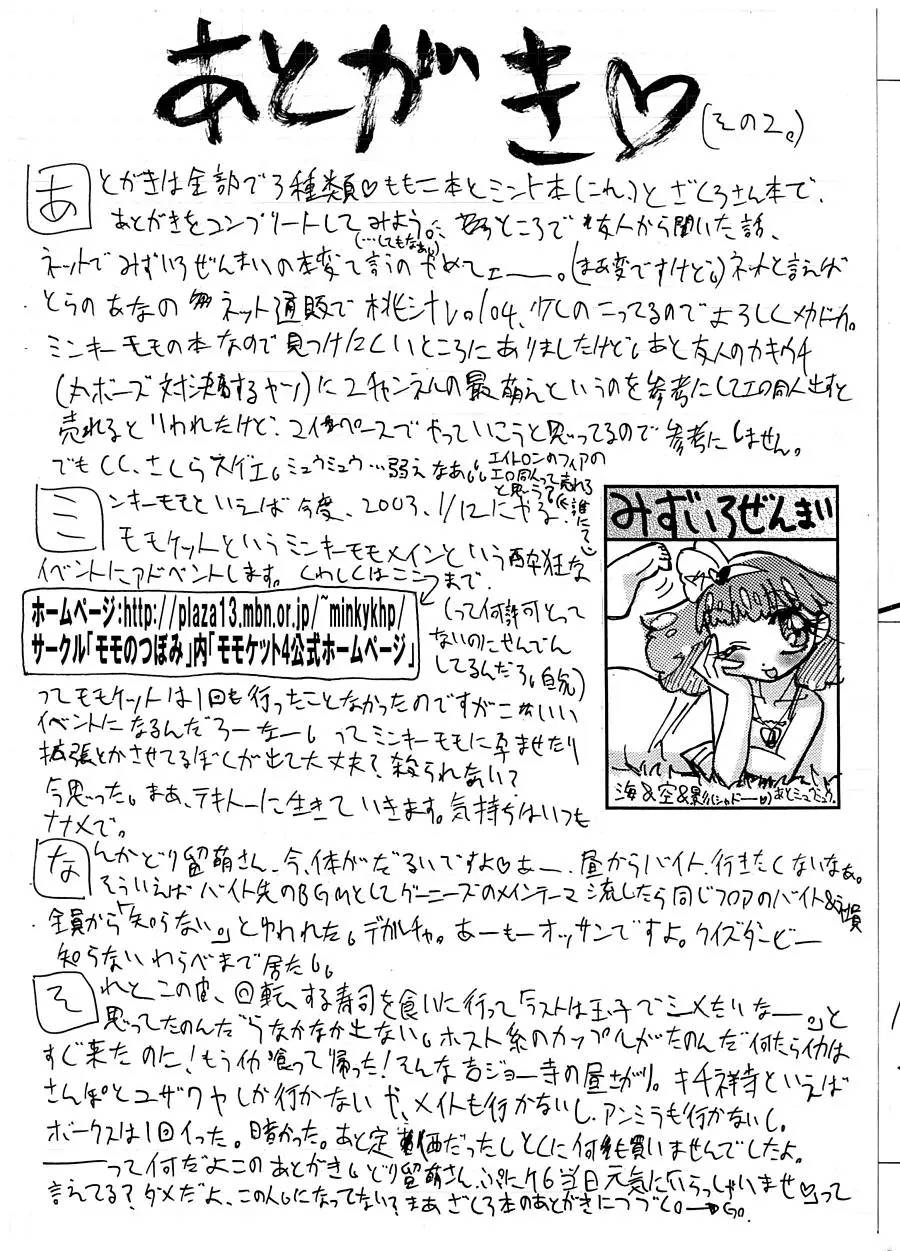 あとがき♡
(その2。)
あとがきは全部で3種類♡ももこ本とミント本(これ)とざくろさん本で、
あとがきをコンプリートしてみよう。 ところで 友人から聞いた話、
(…してもなあ)
ネットでみずいろぜんまいの本変て言うのやめてェ――。(まあ変ですけど)ネットと言えば
とらのあなの ネット通販で桃汁Vol04、少しのこってるのでよろしくメカドカ。
ミンキーモモの本なので見つけにくいところにありましたけど。あと友人のカキウチ
(カボーズ対決するヤツ)に2チャンネルの最萌えというのを参考にしてエロ同人出すと
売れるといわれたけど、 ペースでやっていこうと思ってるので参考にしません。
でもCC.さくらスゲエ。ミュウミュウ…弱えなあ。
エイトロンのフィアの
エロ同人って売れる
と思う?(誰にて)
ミンキーモモといえば今度、2003.1/12にやる
モモケットというミンキーモモメインという酔狂な
イベントにアドベントします。くわしくはここまで。
ホームページ:http://plaza13.mbn.or.jp/~minkykhp/
サークル「モモのつぼみ」内「モモケット4公式ホームページ」
(って何許可とって
ないのにせんでん
してるんだろ。自分)
ってモモケットは1回も行ったことなかったのですがこれいい
イベントになるんだろーなー。ってミンキーモモに孕ませたり
拡張とかさせてるぼくが出て大丈夫?殺られない?
今思った。まあ、テキトーに生きていきます。気持ちはいつも
ナナメで。
みずいろぜんまい
海&空&影(シャドー)あとミュウミュウ。
なんかどり留萌さん、今、体がだるいですよ♡あー、昼からバイト、行きたくないなぁ。
そういえばバイト先のBGMとしてグーニーズのメインテーマ流したら同じフロアのバイト&社員
全員から「知らない。」とゆわれた。デカルチャ。あーもーオッサンですよ。クイズダービー
知らないわらべまで居た。
それとこの前、回転する寿司を食いに行って「ラストは玉子でシメたいなー。」と
思ってたのんだらなかなか出ない。ホスト系のカップルがたのんだ何たらイカは
すぐ来たのに!もうイカ喰って帰った!そんな吉ジョー寺の昼さがり。キチ祥寺といえば
さんぽとユザワヤしか行かないや、メイトも行かないし、アンミラも行かないし。
ボークスは1回イった。暗かった。あと定価だったしとくに何も買いませんでしたよ。
――って何だよこのあとがき。どり留萌さん、ぷにケ6当日元気にいらっしゃいませ♡って
言えてる?ダメだよ、この人。になってない?まあざくろ本のあとがきにつづく。→Go.